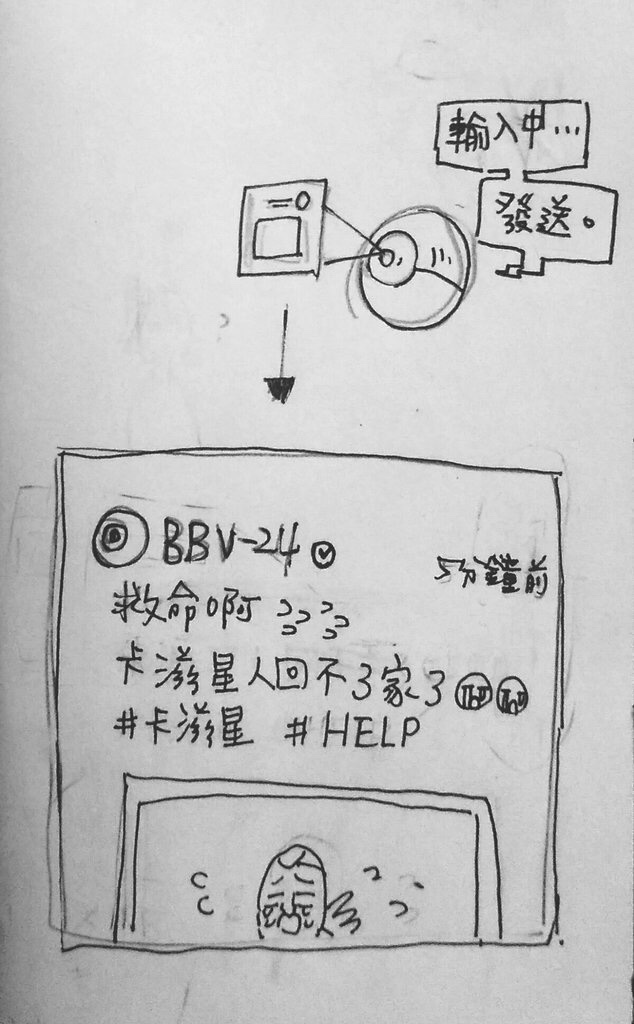 輸入中…
發送。
BBV-24
5分鐘前
救命啊
卡滋星人回不了家了
#卡滋星 #HELP